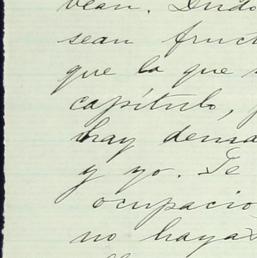 vean. Dudo
sean fruc
que lo que s
capítulo, p
hay dema
y yo. Te
ocupacio
no hayas